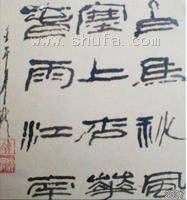 白馬秋風
塞上杏華
春雨江南
www.shufa.com